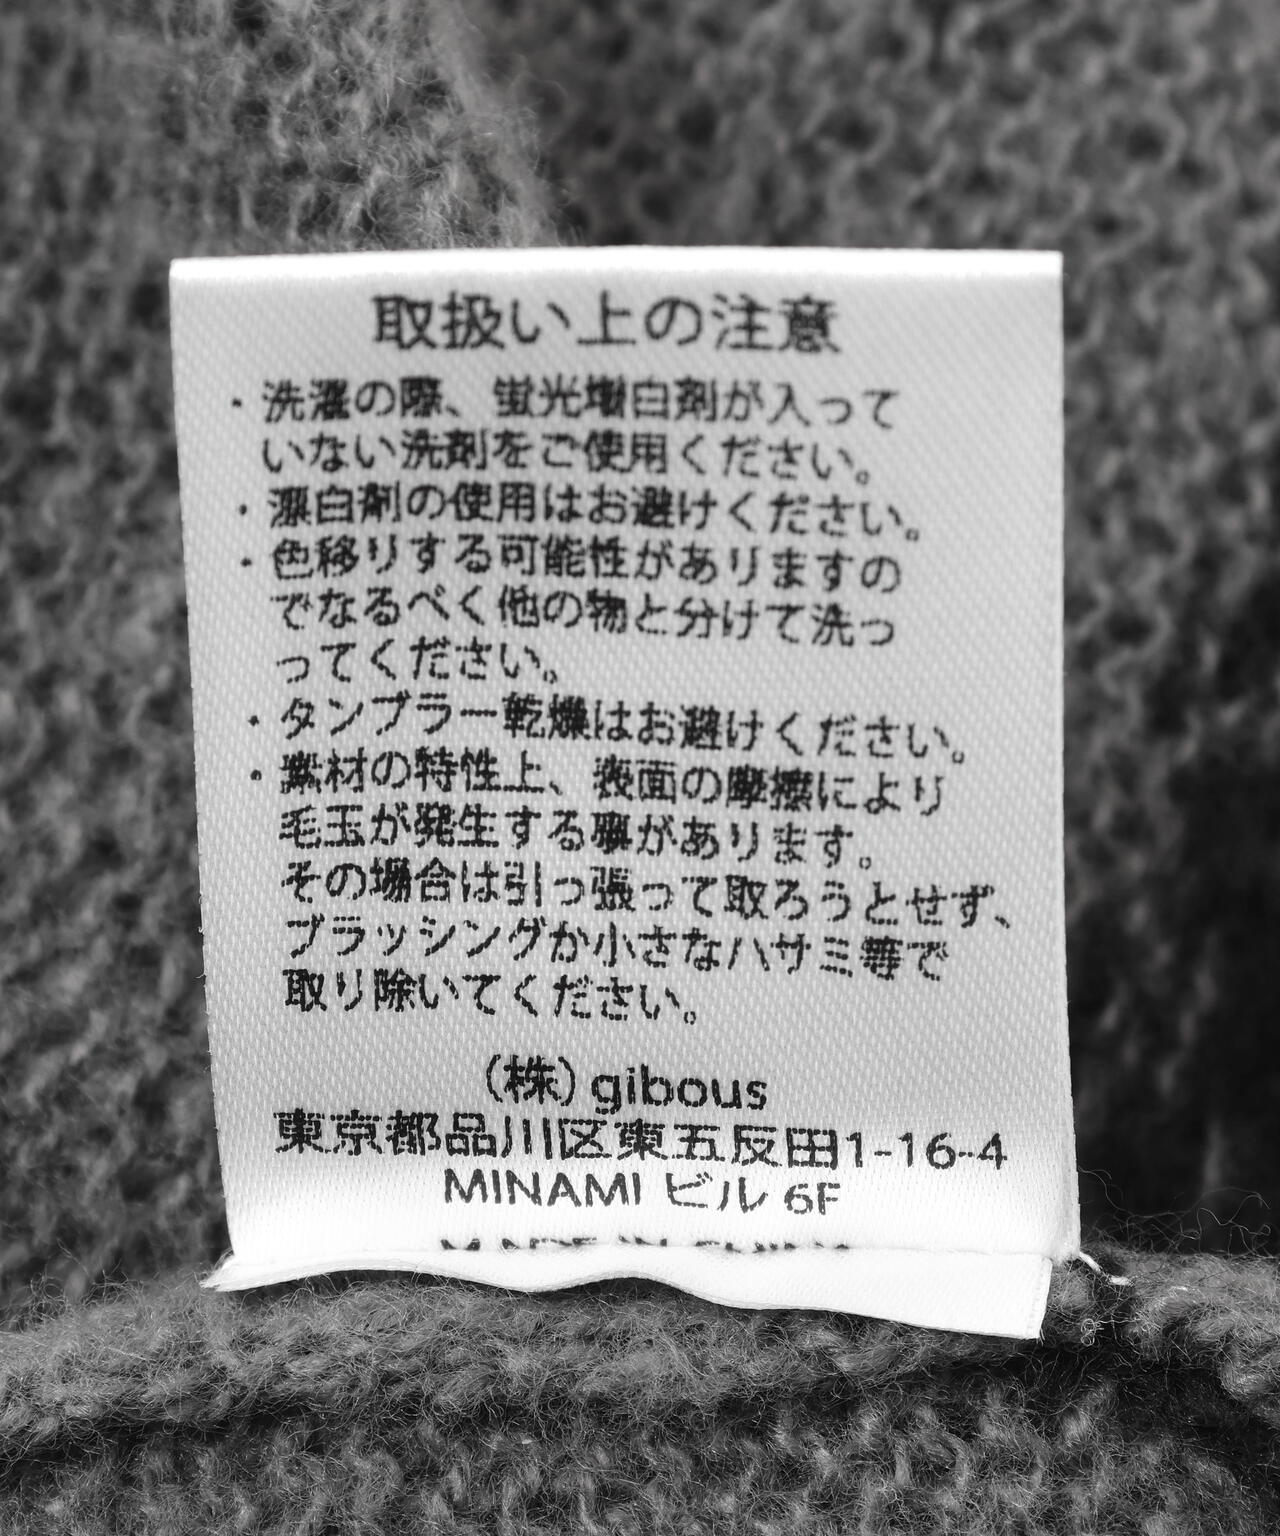 取扱い上の注意
・洗濯の際、蛍光増白剤が入って
いない洗剤をご使用ください。
・漂白剤の使用はお避けください。
・色移りする可能性がありますの
でなるべく他の物と分けて洗っ
ってください。
・タンブラー乾燥はお避けください。
・素材の特性上、表面の摩擦により
毛玉が発生する事があります。
その場合は引っ張って取ろうとせず、
ブラッシングか小さなハサミ等で
取り除いてください。
(株)gibous
東京都品川区東五反田1-16-4
MINAMI ビル 6F